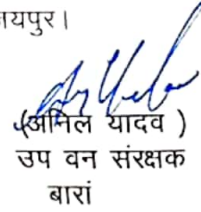 जयपुर।
(अनिल यादव )
उप वन संरक्षक
बारां